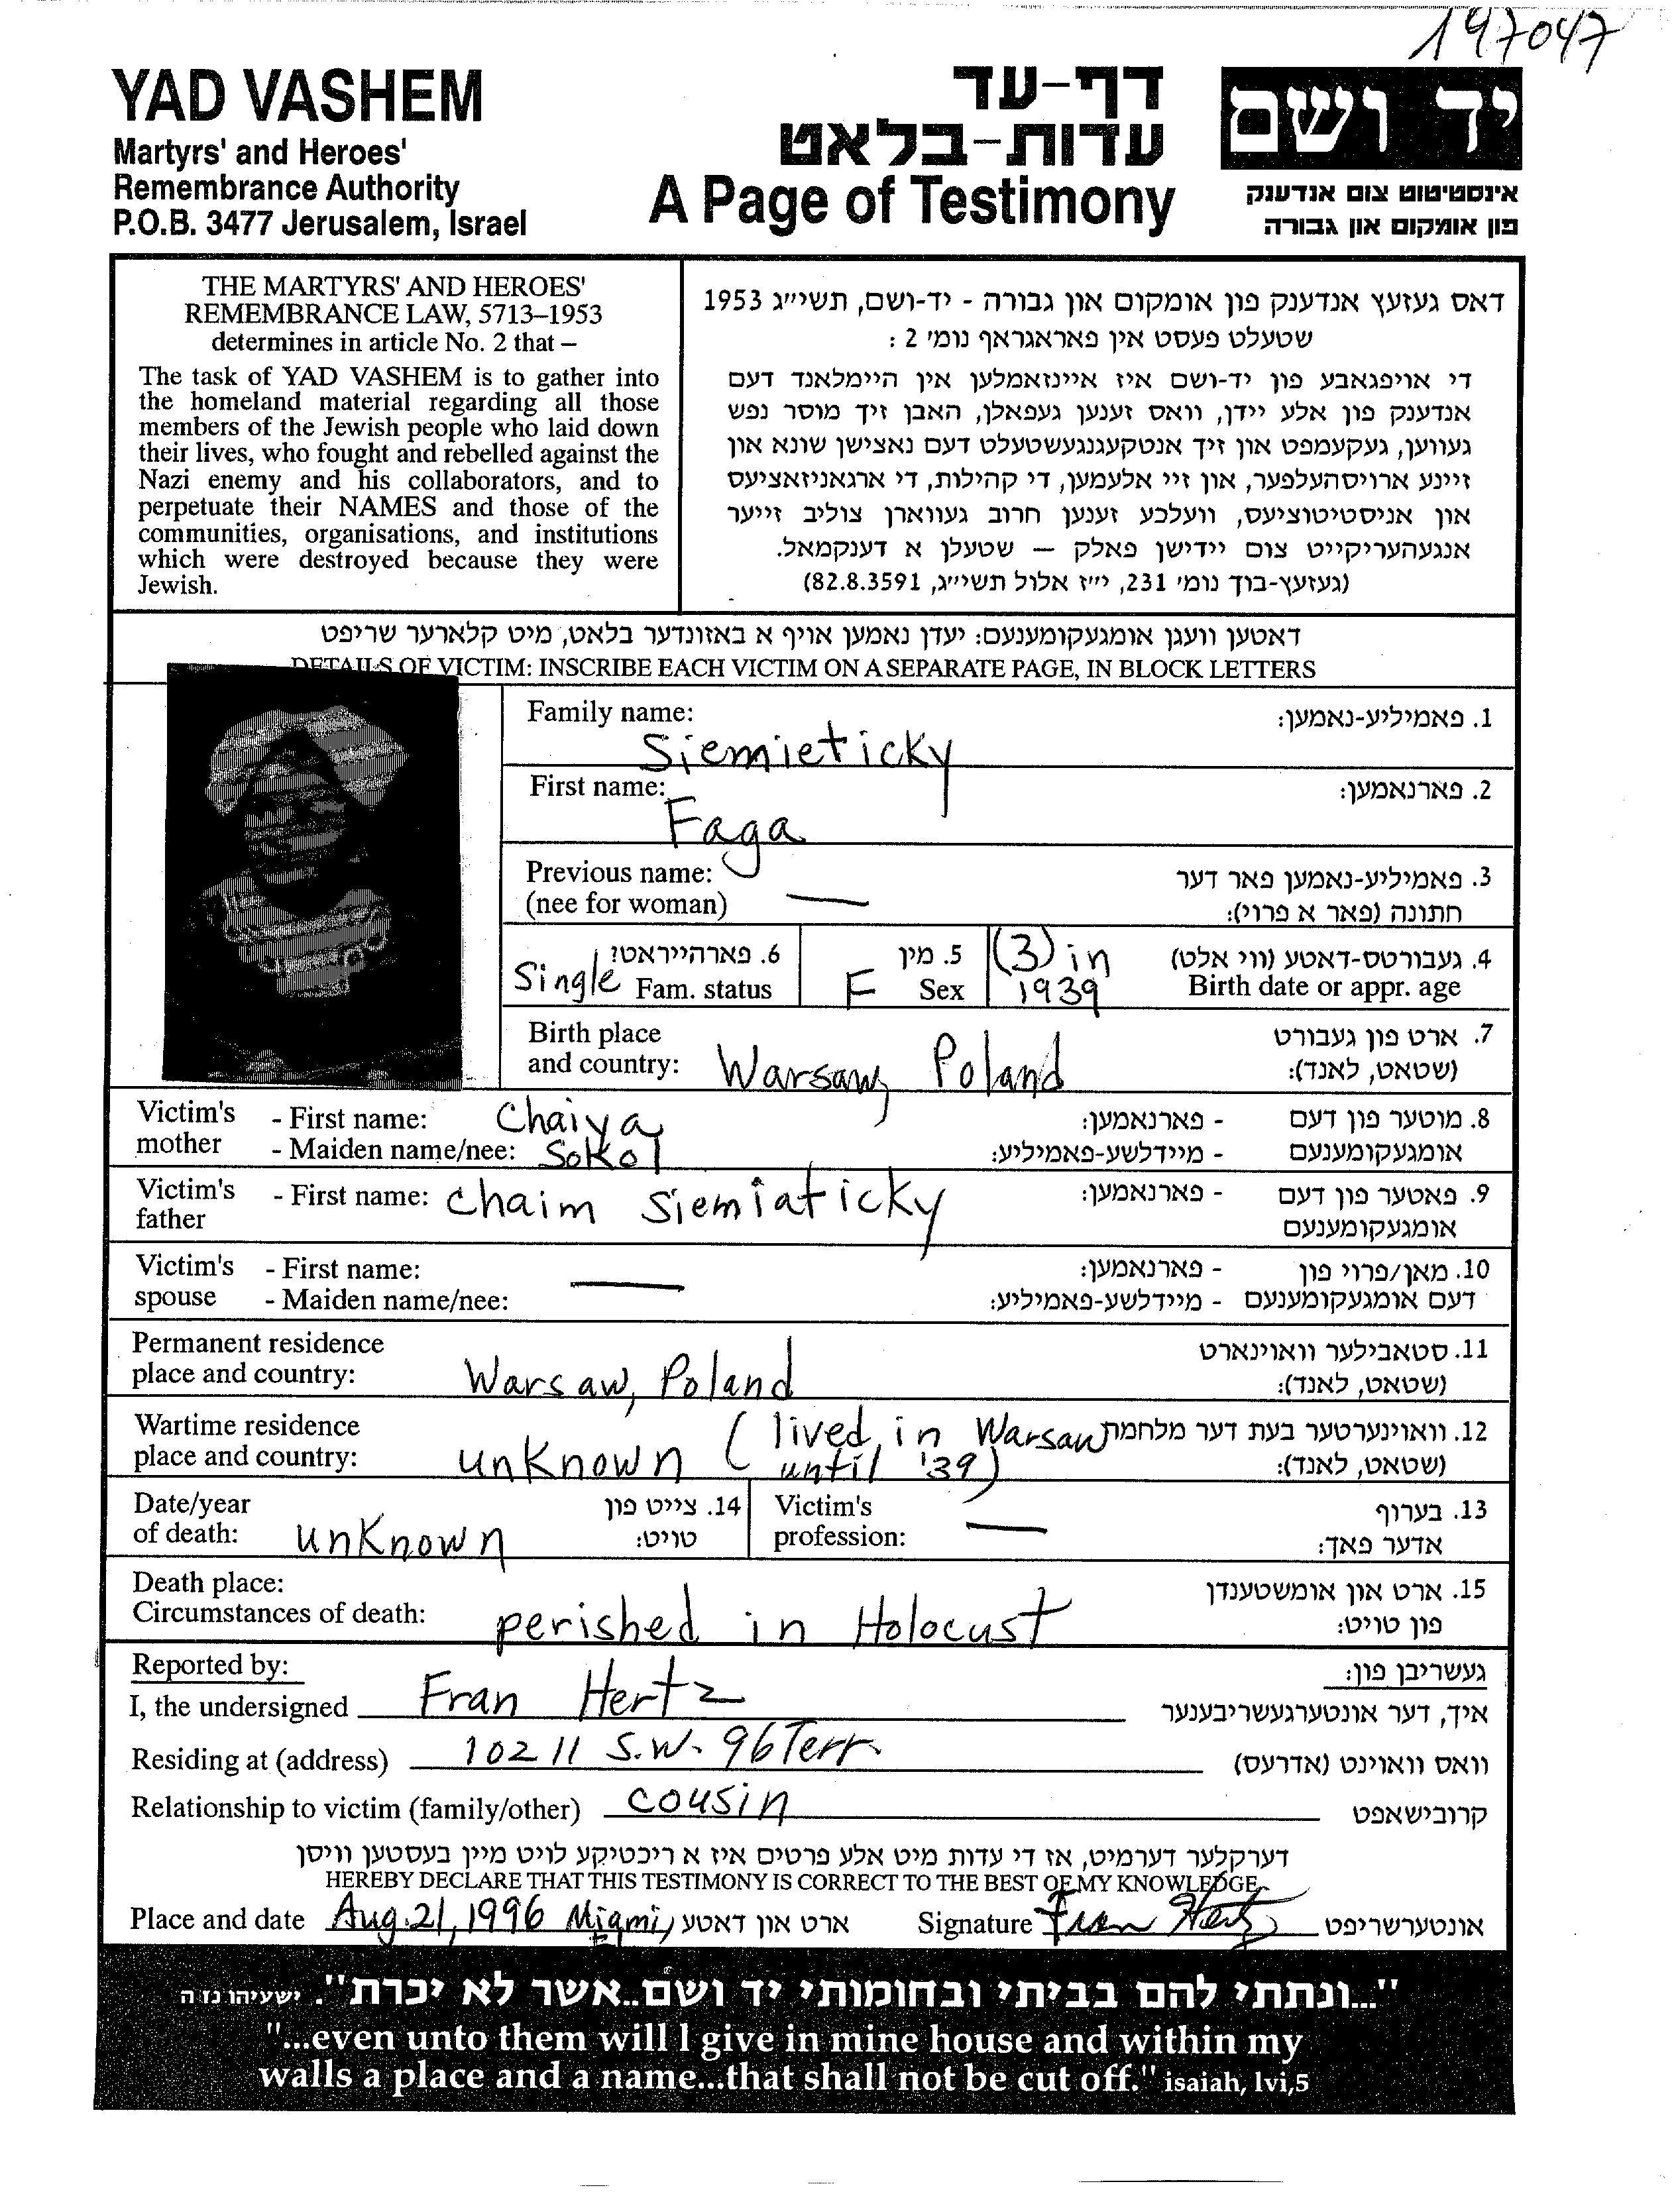 197047
YAD VASHEM
Martyrs' and Heroes'
Remembrance Authority
P.O.B. 3477 Jerusalem, Israel
דף-עד
עדות-בלאט
A Page of Testimony
יד ושם
אינסטיטוט צום אנדענק
פון אומקום און גבורה
THE MARTYRS' AND HEROES'
REMEMBRANCE LAW, 5713–1953
determines in article No. 2 that –
The task of YAD VASHEM is to gather into
the homeland material regarding all those
members of the Jewish people who laid down
their lives, who fought and rebelled against the
Nazi enemy and his collaborators, and to
perpetuate their NAMES and those of the
communities, organisations, and institutions
which were destroyed because they were
Jewish.
דאס געזעץ אנדענק פון אומקום און גבורה - יד-ושם, תשי״ג 1953
שטעלט פעסט אין פאראגראף נומ׳ 2 :
די אויפגאבע פון יד-ושם איז איינזאמלען אין היימלאנד דעם
אנדענק פון אלע יידן, וואס זענען געפאלן, האבן זיך מוסר נפש
געווען, געקעמפט און זיך אנטקעגנגעשטעלט דעם נאצישן שונא און
זיינע ארויסהעלפער, און זיי אלעמען, די קהילות, די ארגאניזאציעס
און אניסטיטוציעס, וועלכע זענען חרוב געווארן צוליב זייער
אנגעהעריקייט צום יידישן פאלק — שטעלן א דענקמאל.
(געזעץ-בוך נומ׳ 231, י״ז אלול תשי״ג, 82.8.3591)
דאטען וועגן אומגעקומענעם: יעדן נאמען אויף א באזונדער בלאט, מיט קלארער שריפט
DETAILS OF VICTIM: INSCRIBE EACH VICTIM ON A SEPARATE PAGE, IN BLOCK LETTERS
Family name: Siemieticky 1. פאמיליע-נאמען:
First name: Faga 2. פארנאמען:
Previous name: 3. פאמיליע-נאמען פאר דער
(nee for woman) — חתונה (פאר א פרוי):
Single 6. פארהייראט?
Fam. status
F 5. מין
Sex
(3) in 4. געבורטס-דאטע (ווי אלט)
1939 Birth date or appr. age
Birth place 7. ארט פון געבורט
and country: Warsaw, Poland (שטאט, לאנד):
Victim's - First name: Chaiya - פארנאמען: 8. מוטער פון דעם
mother - Maiden name/nee: Sokol - מיידלשע-פאמיליע: אומגעקומענעם
Victim's - First name: Chaim Siemiaticky - פארנאמען: 9. פאטער פון דעם
father אומגעקומענעם
Victim's - First name: — - פארנאמען: 10. מאן/פרוי פון
spouse - Maiden name/nee: - מיידלשע-פאמיליע: דעם אומגעקומענעם
Permanent residence 11. סטאבילער וואוינארט
place and country: Warsaw, Poland (שטאט, לאנד):
Wartime residence (lived in Warsaw 12. וואוינערטער בעת דער מלחמה
place and country: unknown until '39) (שטאט, לאנד):
Date/year 14. צייט פון
of death: unknown טויט:
Victim's 13. בערוף
profession: — אדער פאך:
Death place: 15. ארט און אומשטענדן
Circumstances of death: perished in Holocust פון טויט:
Reported by: געשריבן פון:
I, the undersigned Fran Hertz איך, דער אונטערגעשריבענער
Residing at (address) 10211 S.W. 96 Terr. וואס וואוינט (אדרעס)
Relationship to victim (family/other) cousin קרובישאפט
דערקלער דערמיט, אז די עדות מיט אלע פרטים איז א ריכטיקע לויט מיין בעסטען וויסן
HEREBY DECLARE THAT THIS TESTIMONY IS CORRECT TO THE BEST OF MY KNOWLEDGE
Place and date Aug. 21, 1996 Miami, ארט און דאטע Signature Fran Hertz אונטערשריפט
"...ונתתי להם בביתי ובחומותי יד ושם..אשר לא יכרת". ישעיהו נו ה
"...even unto them will I give in mine house and within my
walls a place and a name...that shall not be cut off." isaiah, lvi,5